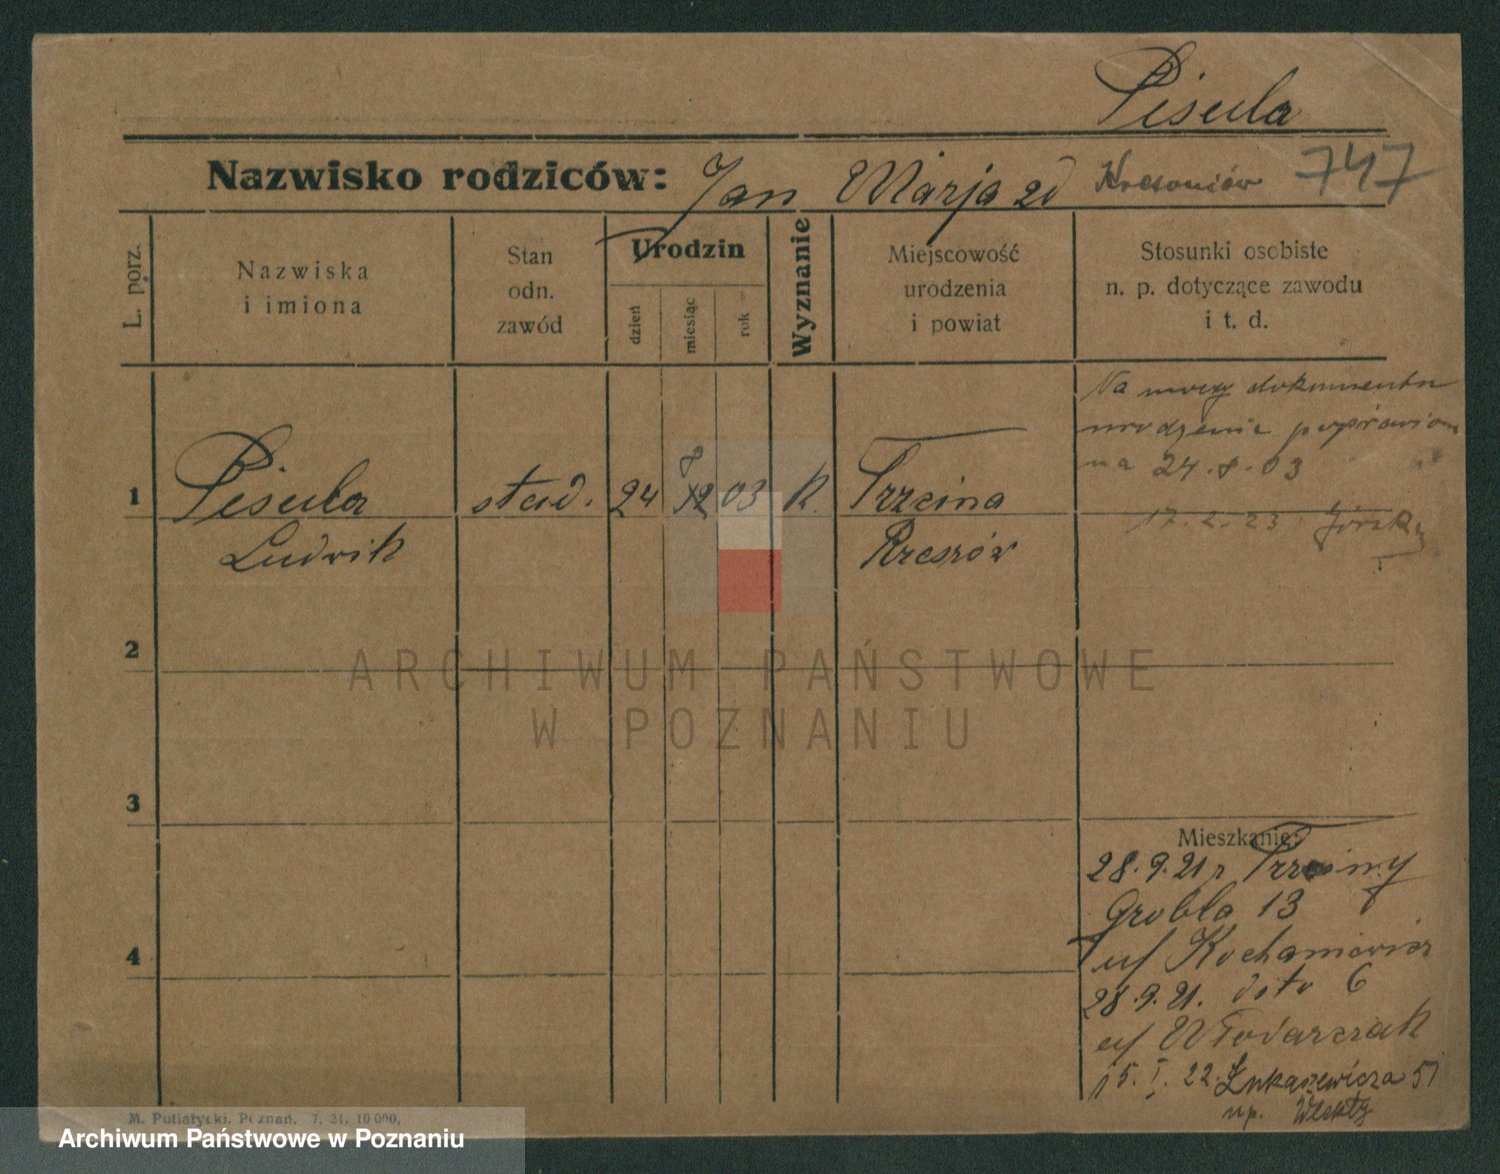 Pisula
Nazwisko rodziców: Jan Marja zd 747
L. porz.
Nazwiska
i imiona
Stan
odn.
zawód
Urodzin
dzień
miesiąc
rok
Wyznanie
Miejscowość
urodzenia
i powiat
Stosunki osobiste
n. p. dotyczące zawodu
i t. d.
Na mocy dokumentu
urodzenie
na 24.8.03
17.2.23
1 Pisula stud. 24 8 12 03 k. Trzcina
Ludwik Rzeszów
2
3
4
Mieszkanie:
28.9.21 r Trzciny
Grobla 13
u/ Kochaniewicz
28.9.21. dsto 6
u/ Włodarczak
15.I.22. Łukaszewicza 51
up.
M. Putiatycki, Poznań, 7. 21. 10 000.
ARCHIWUM PAŃSTWOWE
W POZNANIU
Archiwum Państwowe w Poznaniu